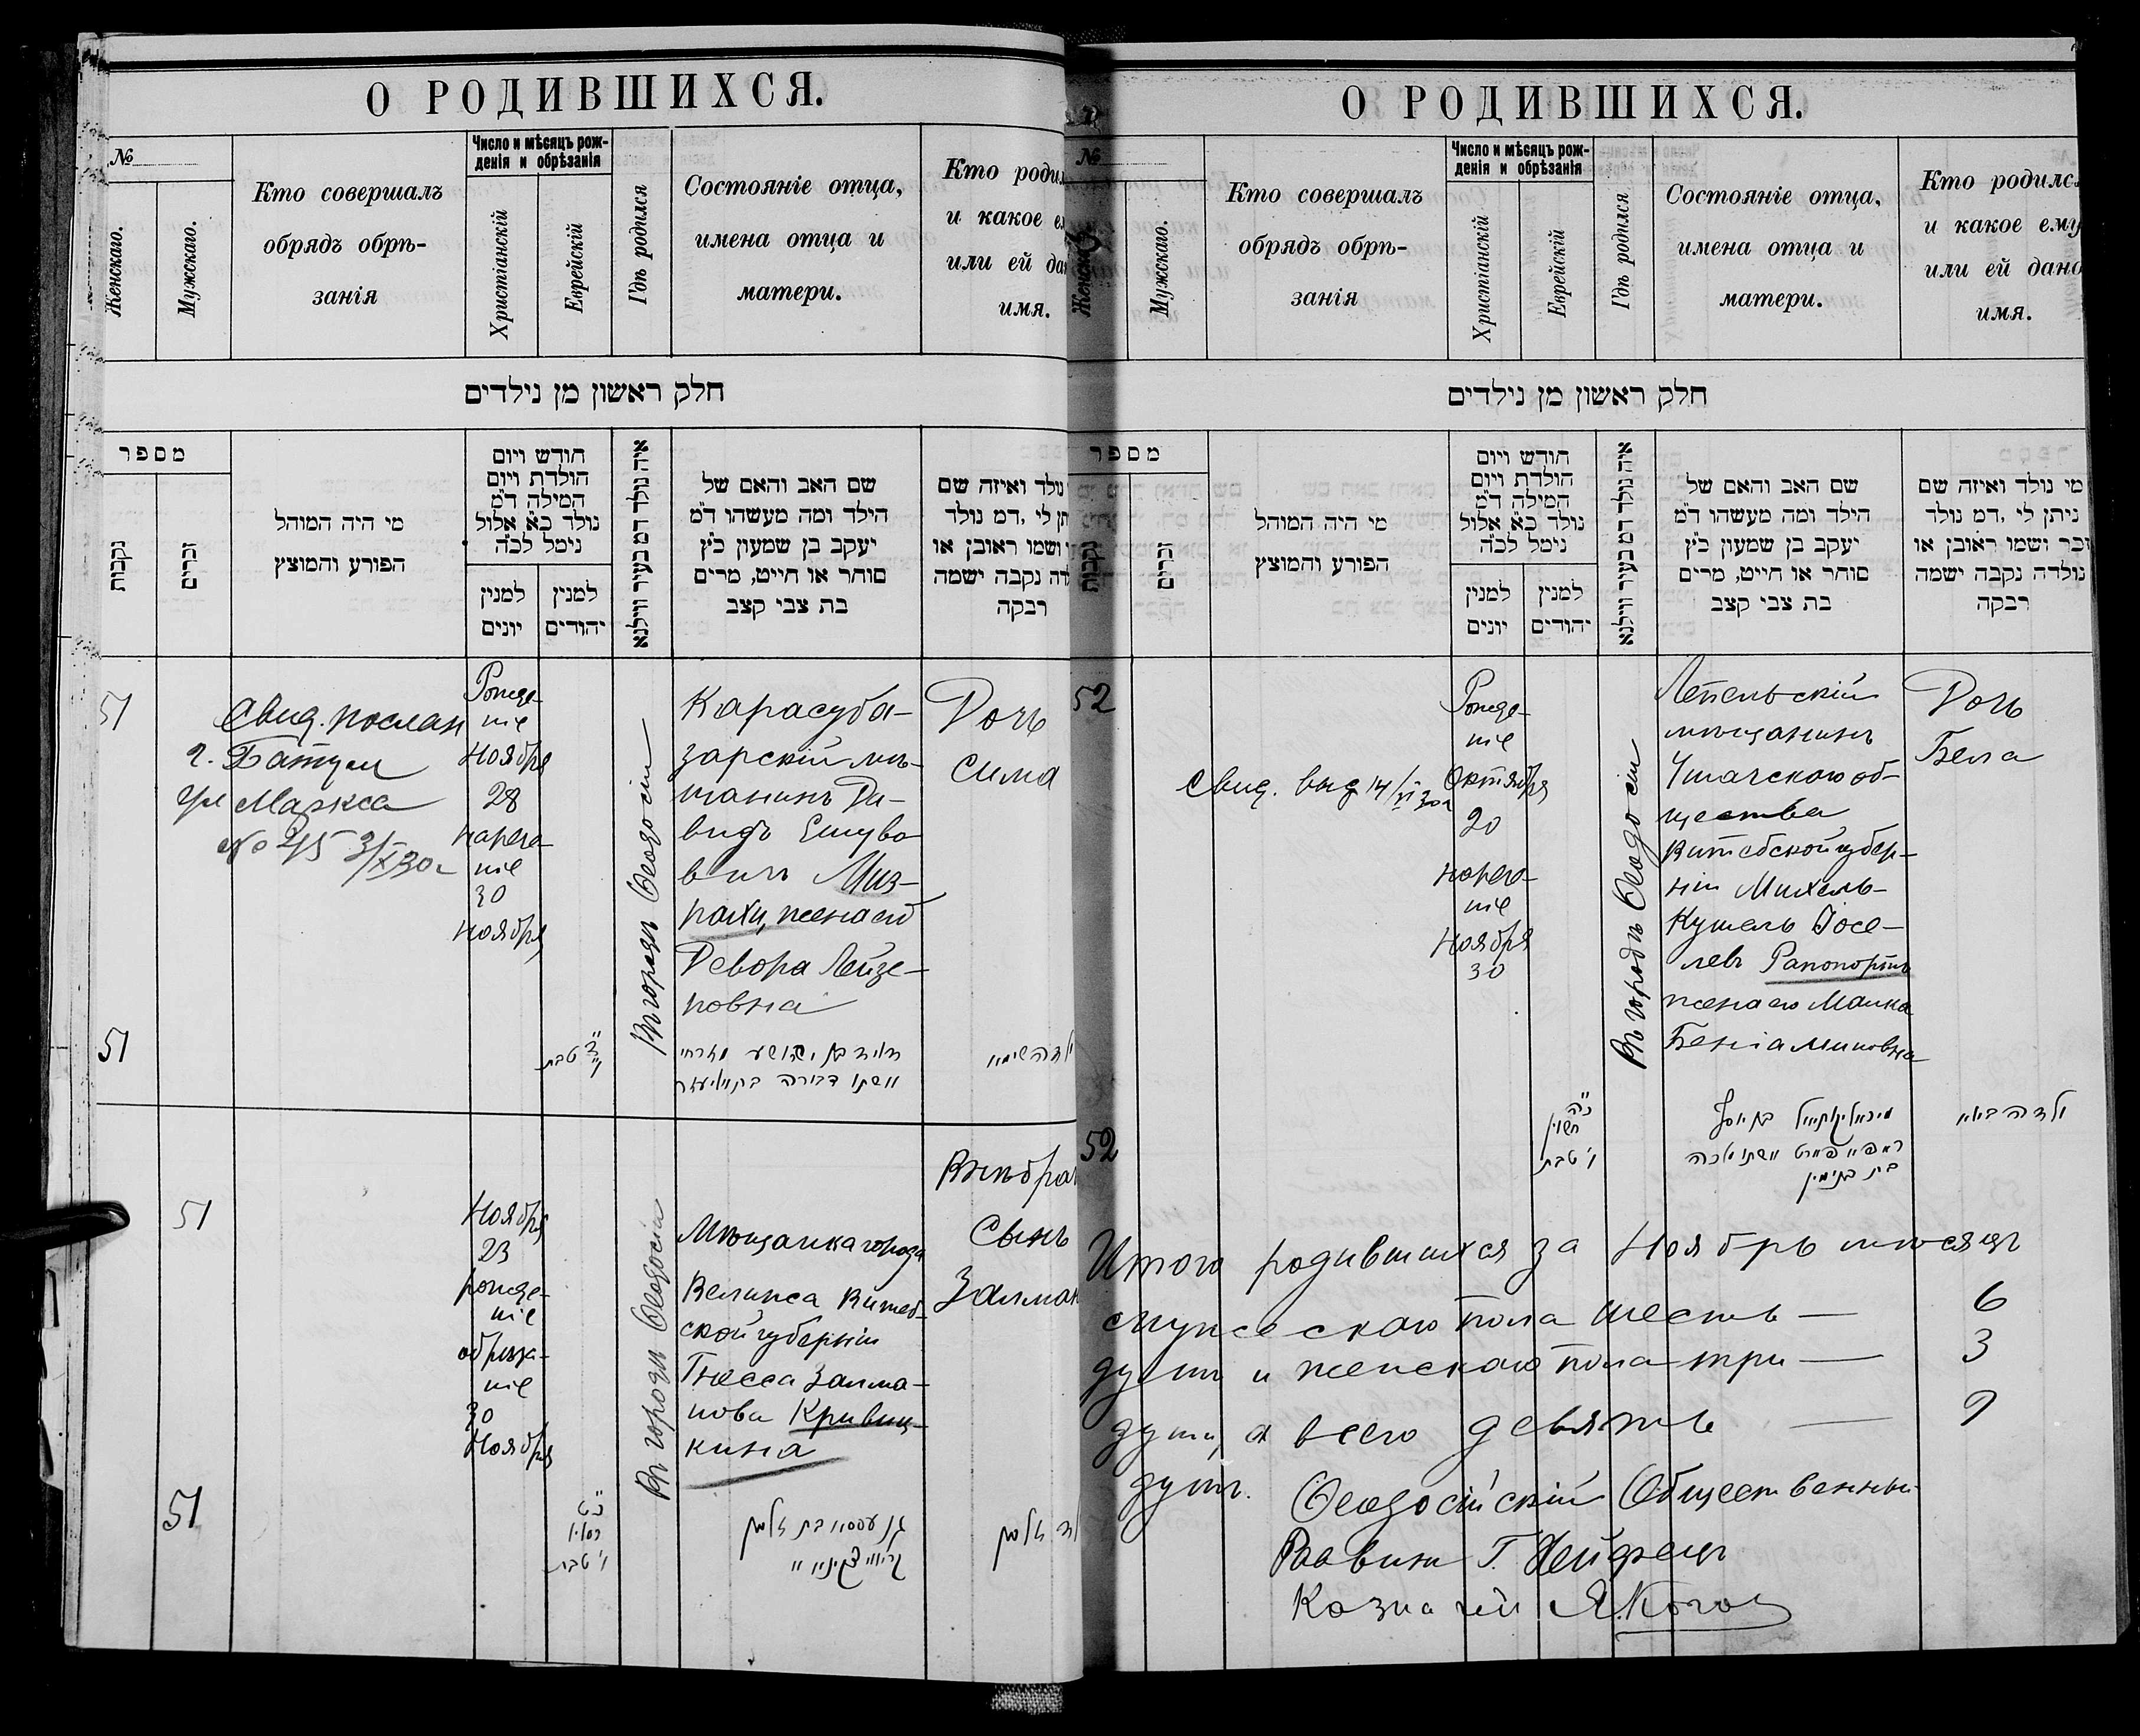 О РОДИВШИХСЯ.
№
Женскаго.
Мужскаго.
Кто совершалъ
обрядъ обрѣ-
занія
Число и мѣсяцъ рож-
денія и обрѣзанія
Христіанскій
Еврейскій
Гдѣ родился
Состояніе отца,
имена отца и
матери.
Кто родил
и какое е
или ей да
имя.
חלק ראשון מן נילדים
מספר
נקבות
זכרים
מי היה המוהל
הפורע והמוצץ
חודש ויום
הולדת ויום
המילה ד"מ
נולד כ"א אלול
נימל לכ"ה
למנין
יונים
למנין
יהודים
איה נולד דמ בעיר ווילנא
שם האב והאם של
הילד ומה מעשהו ד"מ
יעקב בן שמעון כ"ץ
סוחר או חייט, מרים
בת צבי קצב
נולד ואיזה שם
תן לי, דמ נולד
ושמו ראובן או
דה נקבה ישמה
רבקה
51
Свид. послан
г. Батум
ул Маркса
№ 215 3/X 30 г
Рожде-
ніе
Ноября
28
нарече-
ніе
30
Ноября
Въ городѣ Ѳеодосіи
Карасуба-
зарскій мѣ-
щанинъ Да-
видъ Ешуво
вичъ Миз-
рахи, жена его
Девора Лейзе-
ровна
Дочь
Сима
51
טבת
דוד בן יהושע מזרחי
ואשתו דבורה בת אליעזר
51
Ноября
23
рожде-
ніе
обрѣза-
ніе
30
Ноября
Въ городѣ Ѳеодосіи
Мѣщанка города
Велижа Витеб-
ской губерніи
Гнесса Залма-
нова Кривиц-
кина
Внѣбрач
Сынъ
Залман
51
כ"ט
כסליו
ו' טבת
О РОДИВШИХСЯ.
№
Женскаго
Мужскаго.
Кто совершалъ
обрядъ обрѣ-
занія
Число и мѣсяцъ рож-
денія и обрѣзанія
Христіанскій
Еврейскій
Гдѣ родился
Состояніе отца,
имена отца и
матери.
Кто родилс
и какое ему
или ей дано
имя.
חלק ראשון מן נילדים
מספר
נקבות
זכרים
מי היה המוהל
הפורע והמוצץ
חודש ויום
הולדת ויום
המילה ד"מ
נולד כ"א אלול
נימל לכ"ה
למנין
יונים
למנין
יהודים
איה נולד דמ בעיר ווילנא
שם האב והאם של
הילד ומה מעשהו ד"מ
יעקב בן שמעון כ"ץ
סוחר או חייט, מרים
בת צבי קצב
מי נולד ואיזה שם
ניתן לי, דמ נולד
זכר ושמו ראובן או
נולדה נקבה ישמה
רבקה
52
Свид. выд 14/VI 30 г
Рожде-
ніе
Октября
20
нарече-
ніе
Ноября
30
Въ городѣ Ѳеодосіи
Лепельскій
мѣщанинъ
Ушачскаго об-
щества
Витебской губер-
ніи Михель-
Кушель Іосе-
левъ Рапопортъ
жена его Малка
Беніаминовна
Дочь
Бела
52
כ"ה
חשון
ו' טבת
בת בנימין
Итого родившихся за Ноябрь мѣсяцъ
мужескаго пола шесть — 6
душъ и женскаго пола три — 3
души, а всего девять — 9
душъ.
Ѳеодосійскій Общественный
Раввинъ Г. Хейфецъ
Казначей Я. Коган